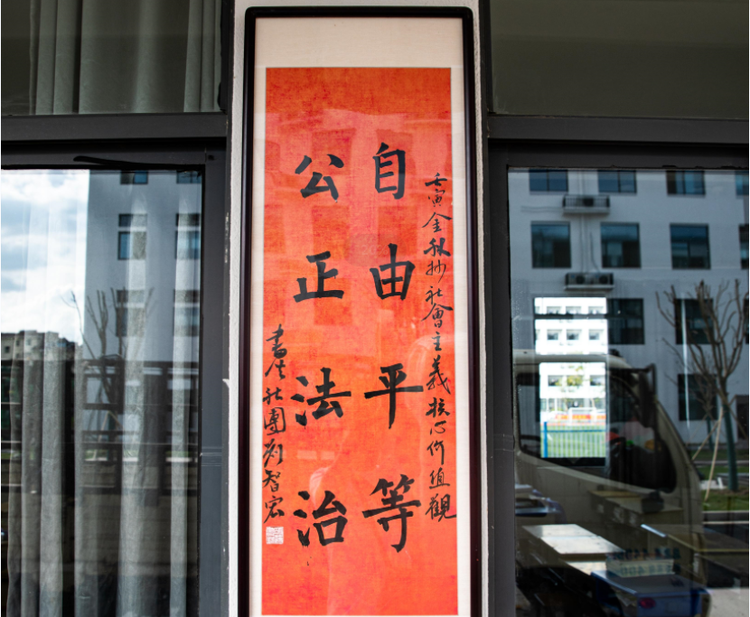 壬寅金秋抄社會主義核心价值觀
自由平等
公正法治
書法社團劉智宏